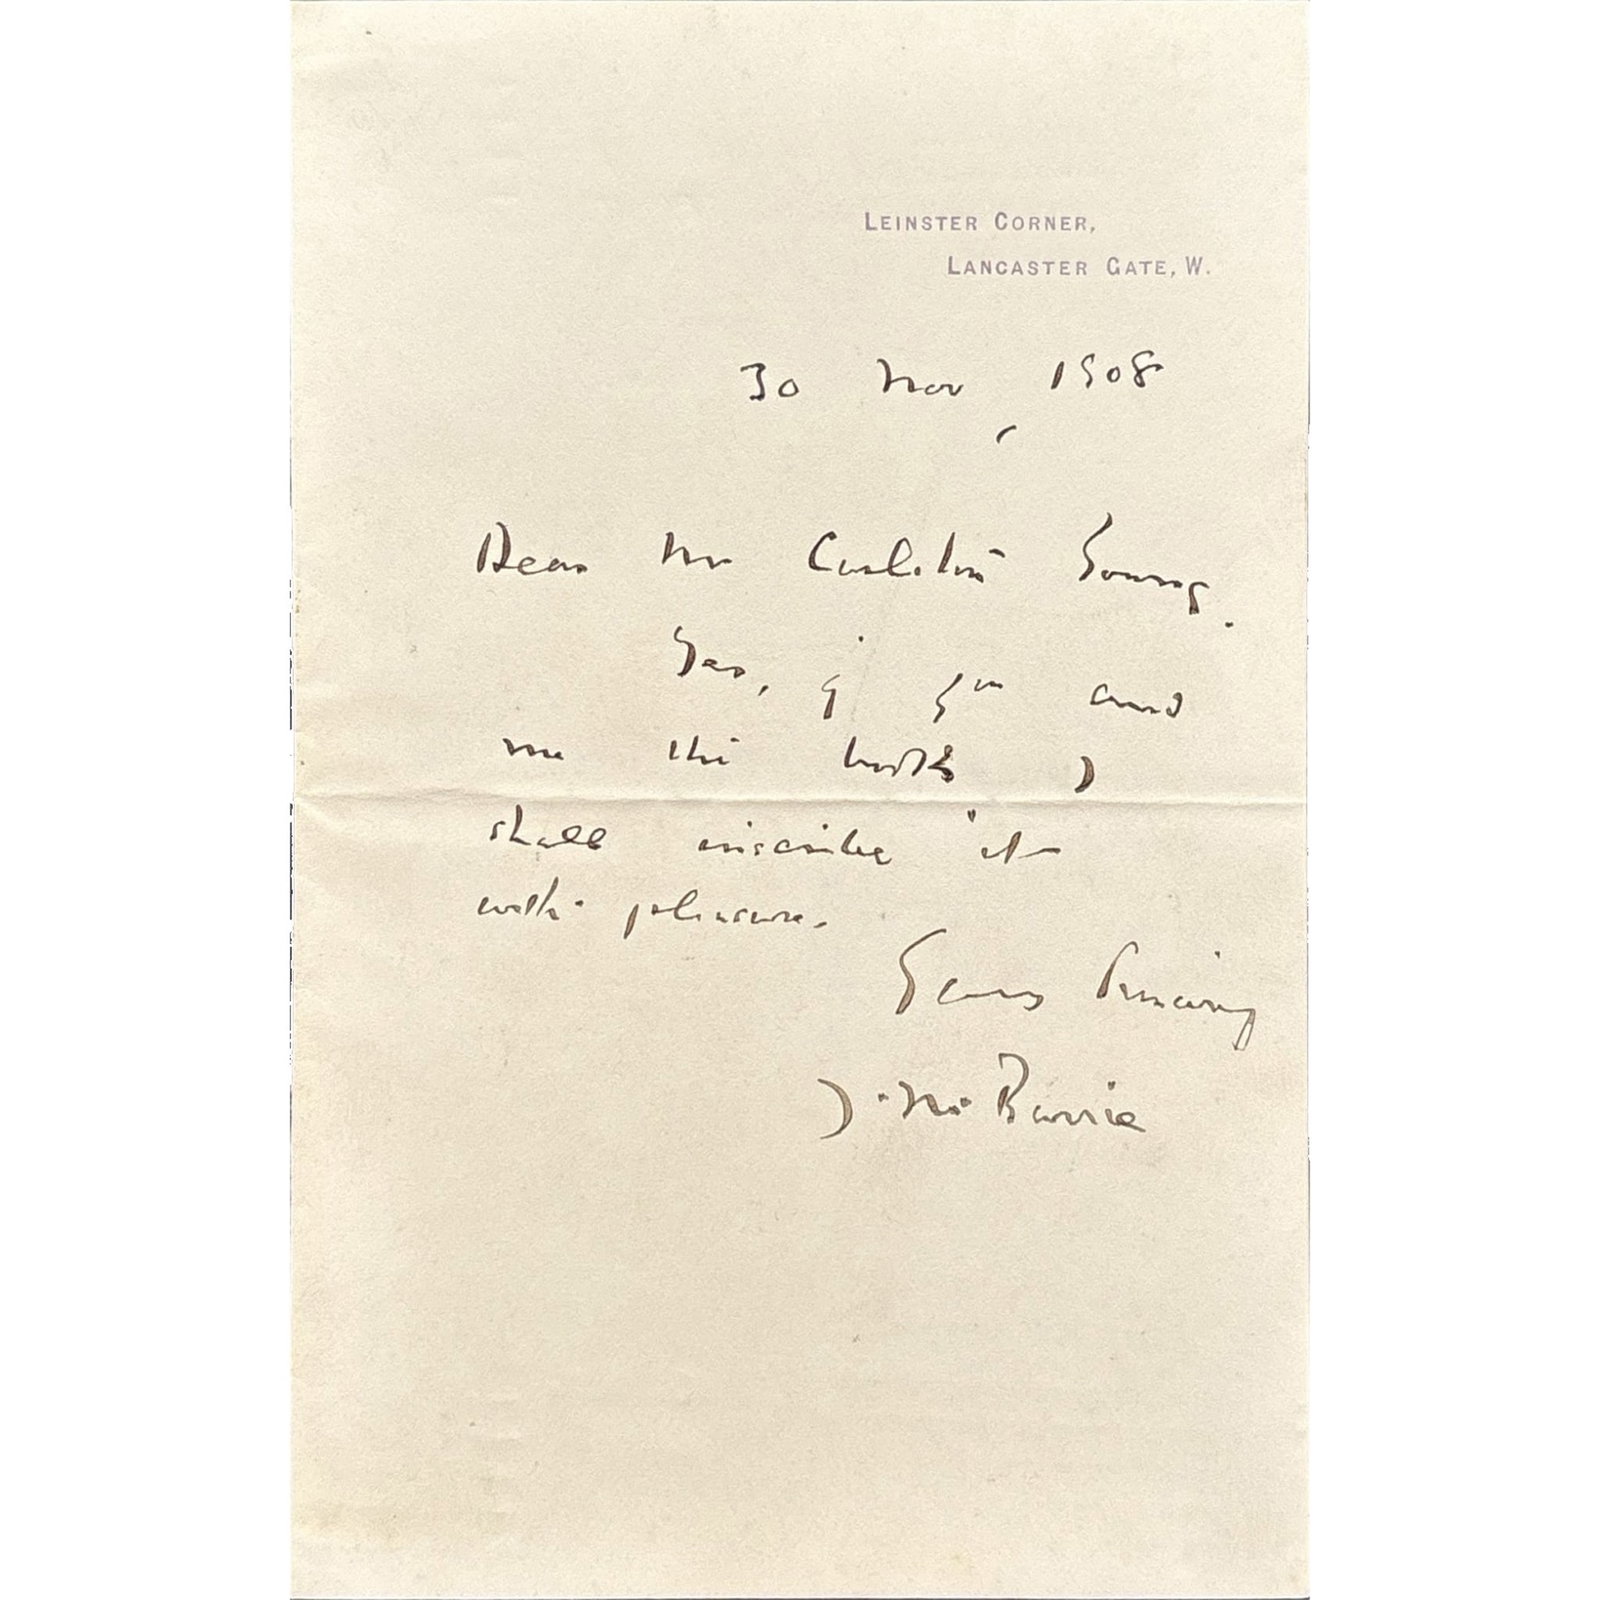 LEINSTER CORNER,
LANCASTER GATE, W.
30 Nov, 1908
Dear Mr Carleton Young.
Yes, if you send
me the book I
shall inscribe it
with pleasure.
Yours sincerely
J. M. Barrie